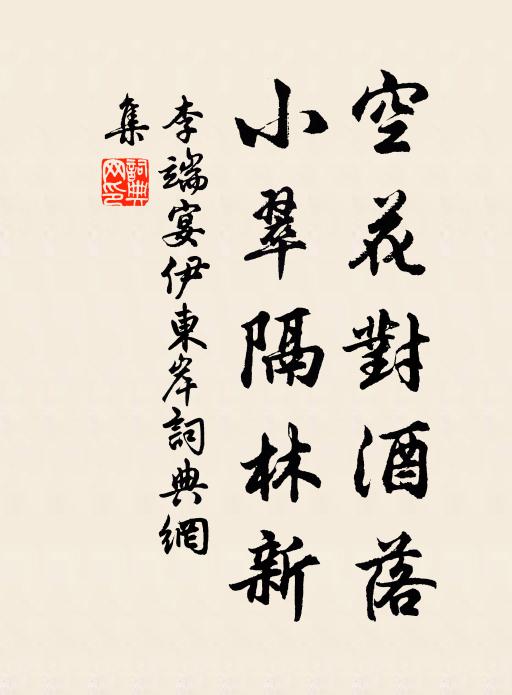 空花對酒落
小翠隔林新
李端宴伊東岸詞典網
集
詞典
網印